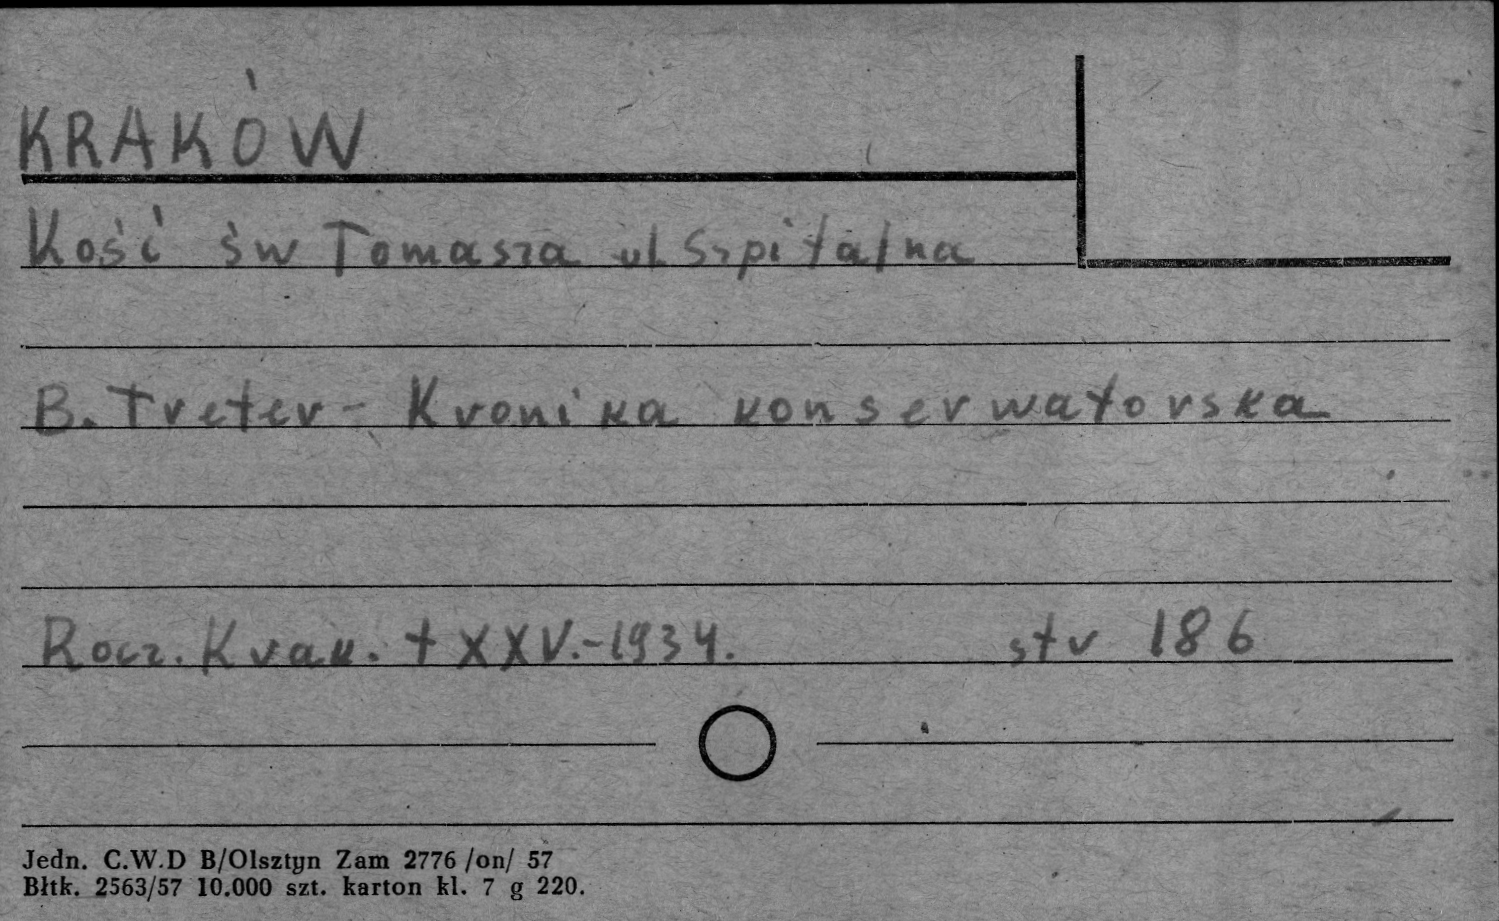 KRAKÓW
Kość św Tomasza ul Szpitalna
B. Treter - Kronika konserwatorska
Rocz. Krak. t XXV.-1934. str 186
Jedn. C.W.D B/Olsztyn Zam 2776 /on/ 57
Błtk. 2563/57 10.000 szt. karton kl. 7 g 220.